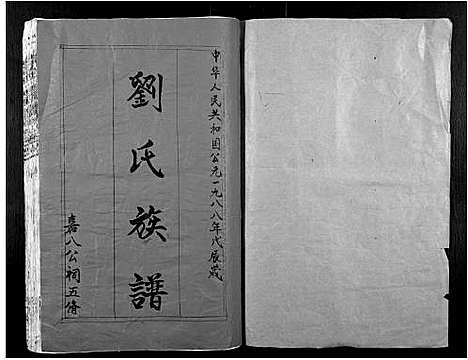 中华人民共和国公元一九八八年戊辰岁
劉氏族譜
嘉八公祠五脩